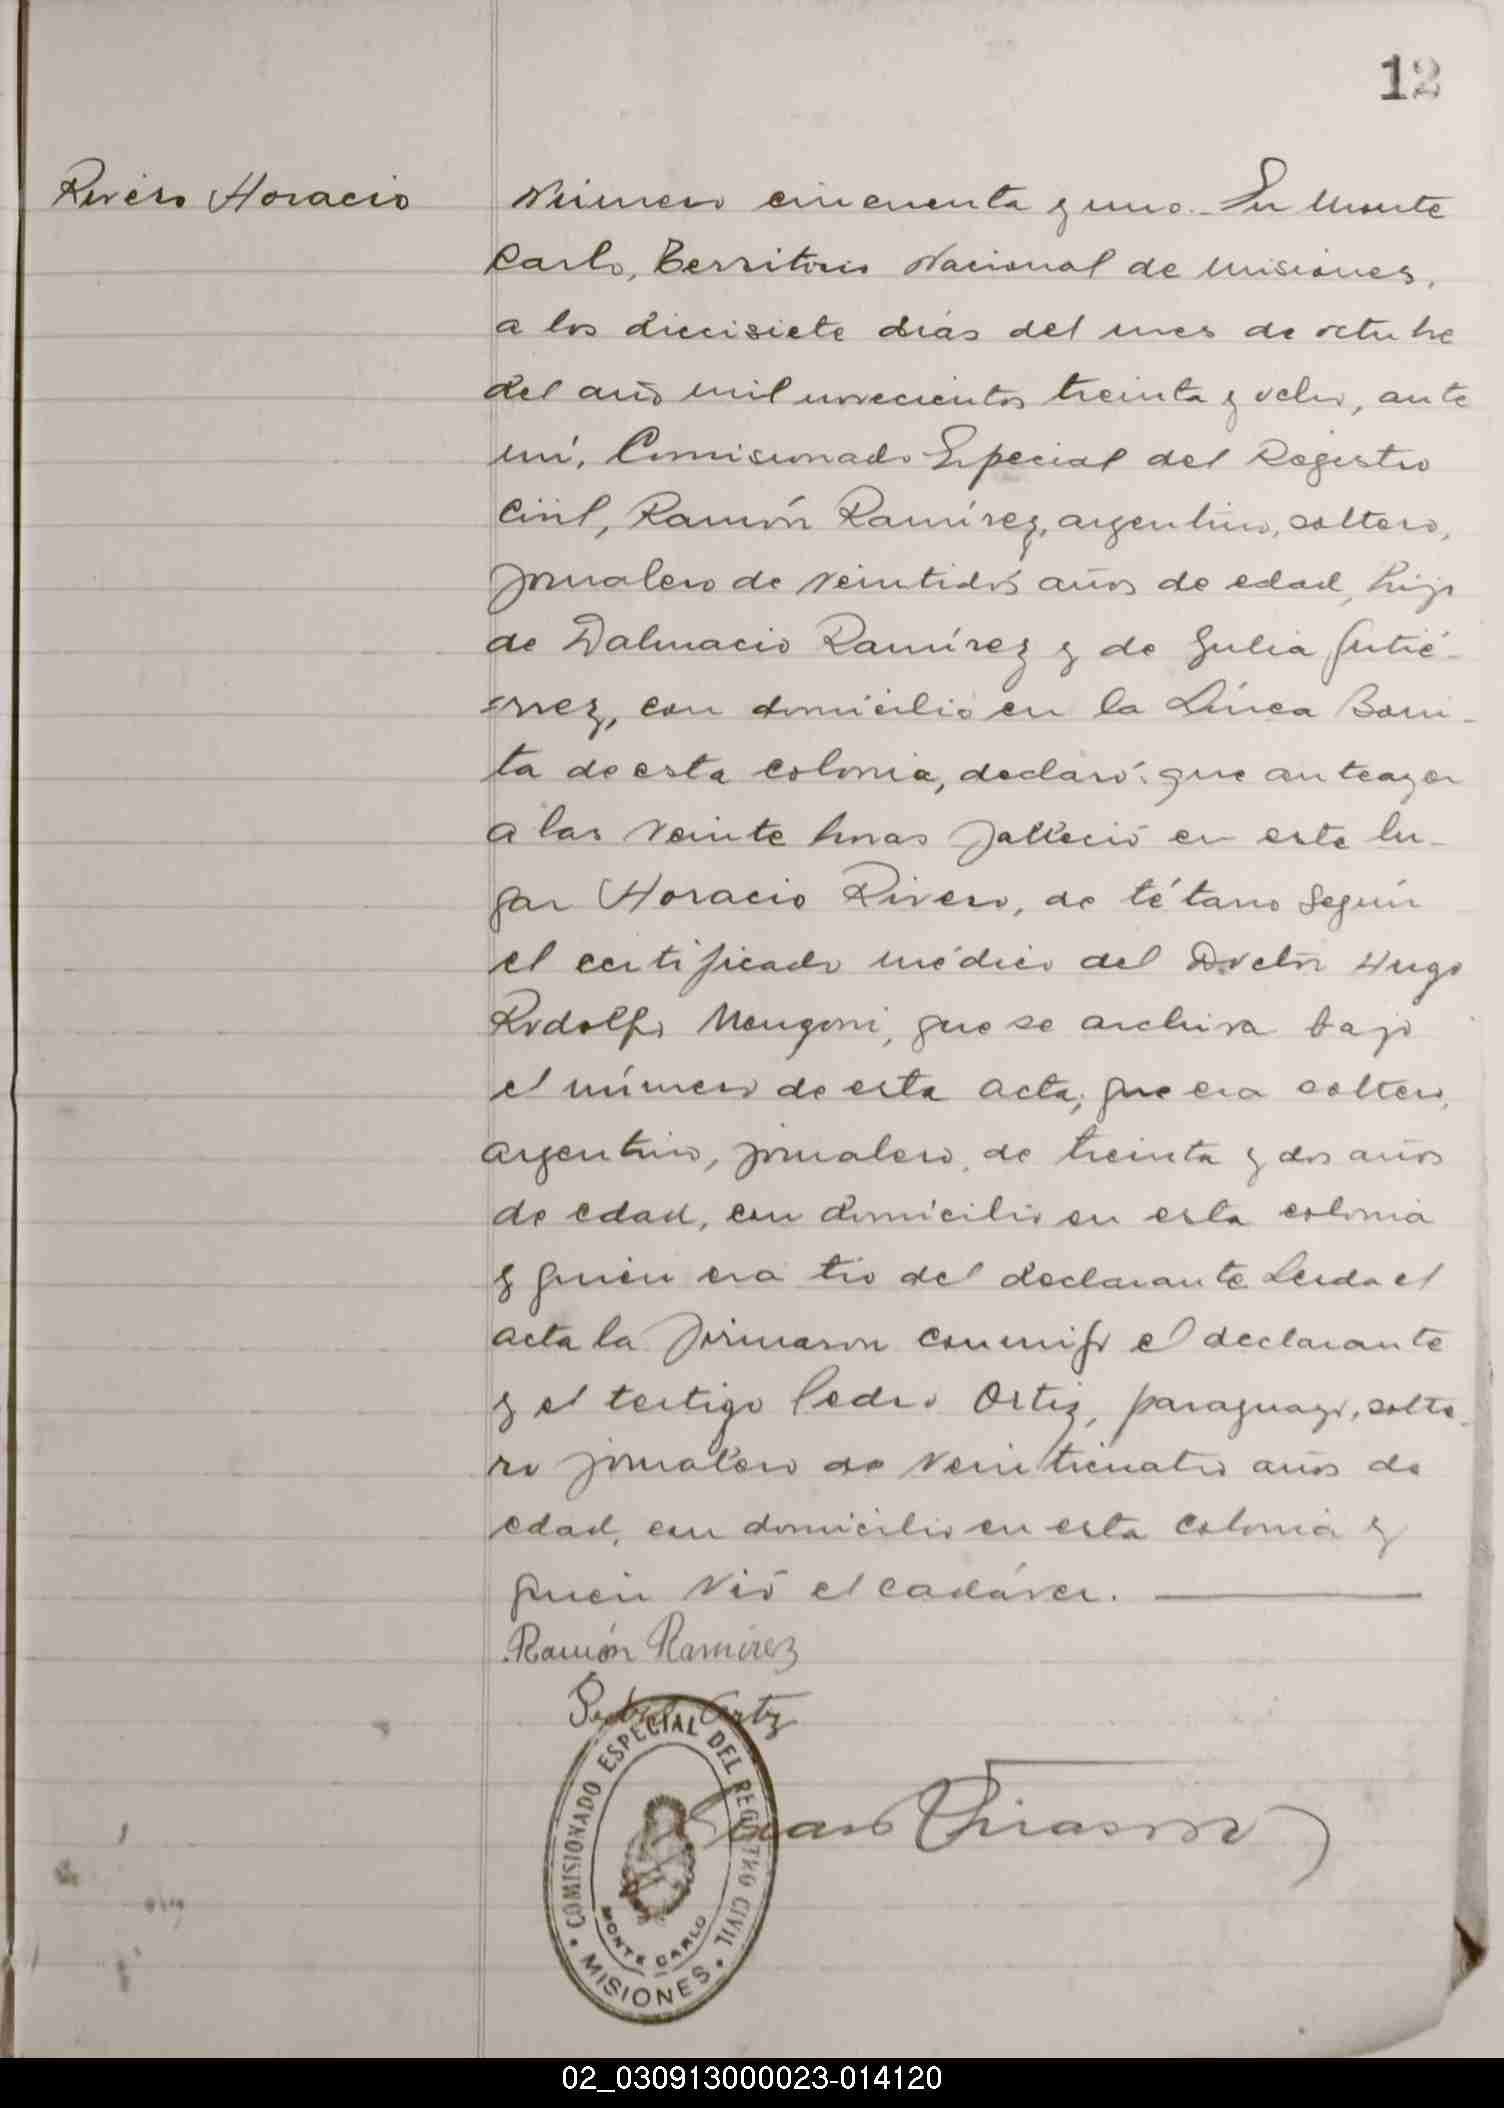 12
Rivero Horacio
Número cincuenta y uno. En Monte
Carlo, Territorio Nacional de Misiones,
a los diecisiete días del mes de octubre
del año mil novecientos treinta y ocho, ante
mí, Comisionado Especial del Registro
Civil, Ramón Ramírez, argentino, soltero,
jornalero de veintidós años de edad, hijo
de Dalmacio Ramírez y de Julia Gutié-
rrez, con domicilio en la Línea Boni-
ta de esta colonia, declaró: que anteayer
a las veinte horas falleció en este lu-
gar Horacio Rivero, de tétano según
el certificado médico del Doctor Hugo
Rodolfo Mengoni, que se archiva bajo
el número de esta acta; que era soltero,
argentino, jornalero, de treinta y dos años
de edad, con domicilio en esta colonia
y quien era tío del declarante. Leída el
acta la firmaron conmigo el declarante
y el testigo Pedro Ortiz, paraguayo, solte-
ro jornalero de veinticuatro años de
edad, con domicilio en esta colonia y
quien vió el cadáver.
Ramón Ramírez
Pedro Ortiz
COMISIONADO ESPECIAL DEL REGISTRO CIVIL
MONTE CARLO
MISIONES
02_030913000023-014120